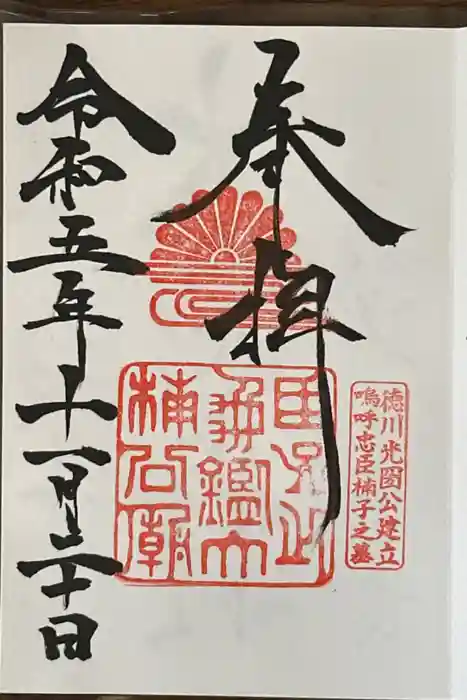 奉拝
徳川光圀公建立
嗚呼忠臣楠子之墓
楠公廟
令和五年十一月二十日